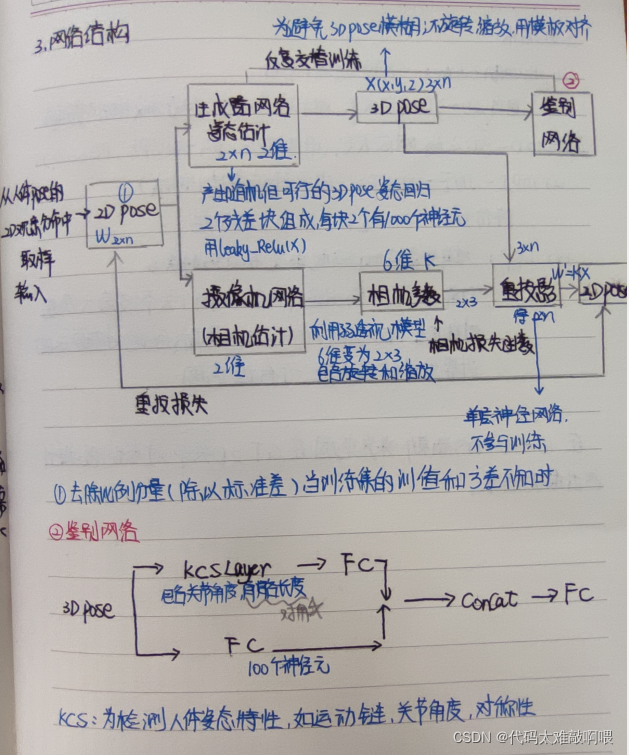 为避免3Dpose模糊;不旋转缩放,用模板对齐
3.网络结构
反复交替训练
X(x,y,z)3×n
②
生成器网络
姿态估计
2×n 2维
3D pose
鉴别
网络
从人体姿态的
2D观察分布中
取样
输入
①
2D pose
W2×n
产出随机但可行的3Dpose姿态回归
2个残差块组成,每块2个有1000个神经元
用leaky_Relu(X)
3×n
6维 K
摄像机网络
(相机估计)
2维
相机参数
2×3
重投影
W'=KX
2Dpose
利用弱透视机模型
6维变为2×3
包含旋转和缩放
相机损失函数
重投损失
单层神经网络,
不参与训练
①去除比例分量(除以标准差)当训练集的训值和方差不知时
②鉴别网络
KCSLayer → FC
包含关节角度,骨骼长度
3Dpose
Concat → FC
FC
100个神经元
KCS:为检测人体姿态特性,如运动链,关节角度,对称性
CSDN @代码太难敲啊喂